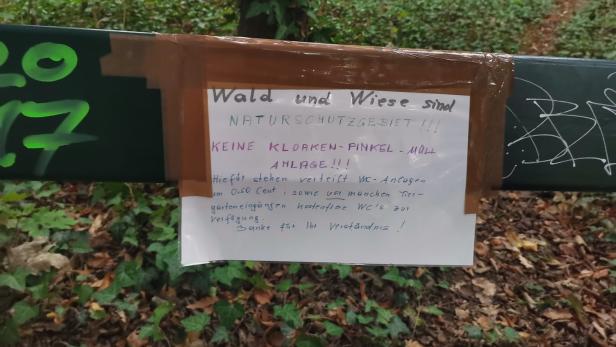 20
17
Wald und Wiese sind
NATURSCHUTZGEBIET!!!
KEINE KLOAKEN-PINKEL-MÜLL
ANLAGE!!!
Hiefür stehen verteilt WC-Anlagen
um 0.50 Cent, sowie vor manchen Tier-
garteneingängen kostenlose WC's zur
Verfügung.
Danke für Ihr Verständnis!